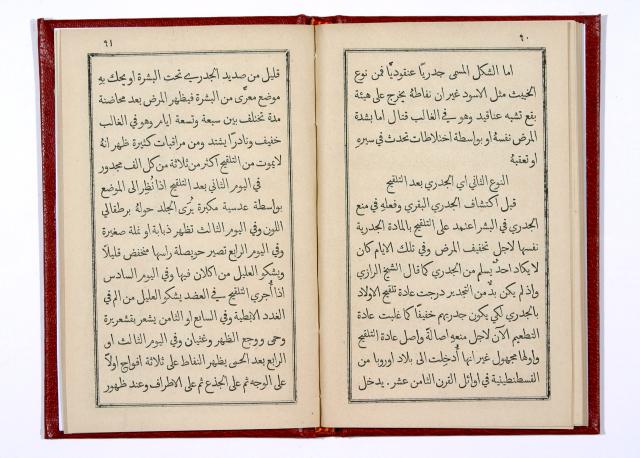 ٩٠
اما الشكل المسمى جدريًا عنقوديًا فمن نوع
الخبيث مثل الاسود غير ان نفاطهُ يخرج على هيئة
بقع تشبه عناقيد وهو في الغالب قتال اما بشدة
المرض نفسهُ او بواسطة اختلاطات تحدث في سيرهِ
او تعقبهُ
النوع الثاني اي الجدري بعد التلقيح
قبل اكتشاف الجدري البقري وفعلهِ في منع
الجدري في البشر اعتمد على التلقيح بالمادة الجدرية
نفسها لاجل تخفيف المرض وفي تلك الايام كان
لا يكاد احدٌ يسلم من الجدري كما قال الشيخ الرازي
واذ لم يكن بدٌّ من التجدير درجت عادة تلقيح الاولاد
بالجدري لكي يكون جدريهم خفيفًا كما غلبت عادة
التطعيم الآن لاجل منعهِ اصالةً واصل عادة التلقيح
واولها مجهول غير انها أُدخلت الى بلاد اوروبا من
القسطنطينية في اوائل القرن الثامن عشر . يدخل
٩١
قليل من صديد الجدري تحت البشرة او يحك بهِ
موضع معرًّى من البشرة فيظهر المرض بعد محاضنة
مدة تختلف بين سبعة وتسعة ايام وهو في الغالب
خفيف ونادرًا يشتد ومن مراقبات كثيرة ظهر انهُ
لايموت من التلقيح اكثر من ثلاثة من كل الف مجدور
في اليوم الثاني بعد التلقيح اذا نُظر الى الموضع
بواسطة عدسية مكبرة يُرى الجلد حولهُ برطقالي
اللون وفي اليوم الثالث تظهر ذبابة او نملة صغيرة
وفي اليوم الرابع تصير حويصلة راسها منخفض قليلًا
ويشكو العليل من اكلان فيها وفي اليوم السادس
اذا أُجري التلقيح في العضد يشكو العليل من الم في
الغدد الابطية وفي السابع او الثامن يشعر بقشعريرة
وحمى ووجع الظهر وغثيان وفي اليوم الثالث او
الرابع بعد الحمى يظهر النفاط على ثلاثة افواج اولًا
على الوجه ثم على الجذع ثم على الاطراف وعند ظهور